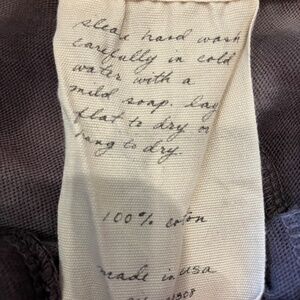 please hand wash
carefully in cold
water with a
mild soap. lay
flat to dry or
hang to dry.
100% cotton
made in usa